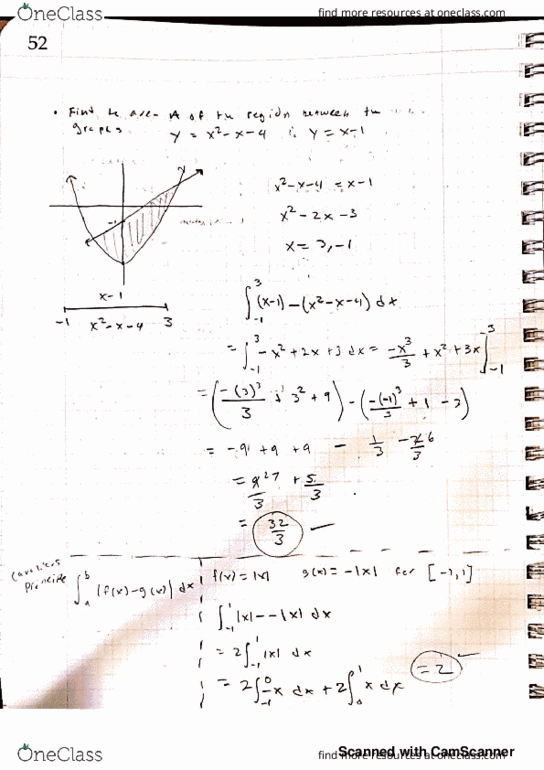 OneClass
find more resources at oneclass.com
52
• Find the area A of the region between the
graphs y = x²-x-4 & y = x-1
x²-x-4 = x-1
x² - 2x - 3
x = 3, -1
-1
x-1
-1 x²-x-4 3
∫₋₁³ (x-1) - (x²-x-4) dx
= ∫₋₁³ -x² + 2x + 3 dx = -x³/3 + x² + 3x |₋₁³
= (-(3)³/3 + 3² + 9) - (-(-1)³/3 + 1 - 3)
= -9 + 9 + 9 -
= 27/3 + 5/3
= 32/3
Principle ∫ₐᵇ |f(x) - g(x)| dx
f(x) = |x| g(x) = -|x| for [-1,1]
∫₋₁¹ |x| - -|x| dx
= 2∫₋₁¹ |x| dx
= 2∫₋₁⁰ -x dx + 2∫₀¹ x dx = 2
OneClass
find more resources at oneclass.com
Scanned with CamScanner